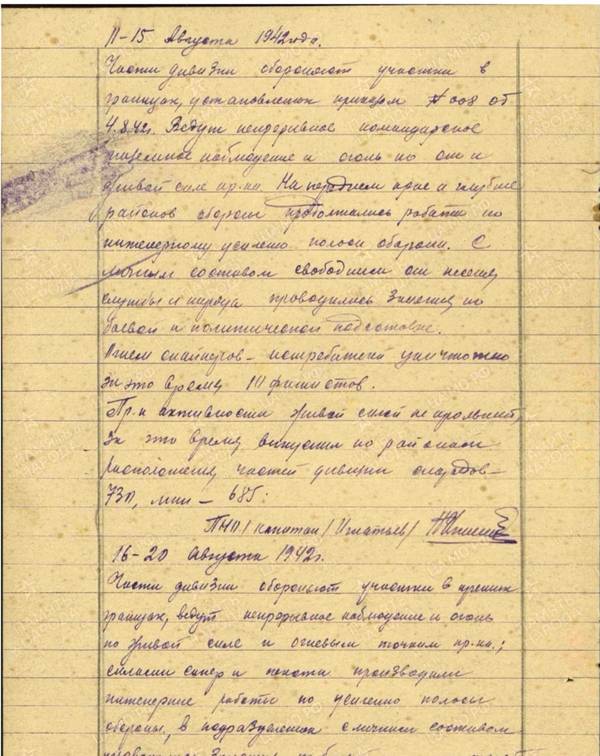 11-15 Августа 1942 года.
Части дивизии обороняют участки в
границах, установленных приказом № 008 от
4.8.42г. Ведут непрерывное командирское
наблюдение и огонь по от и
живой силе пр-ка. На переднем крае и глубине
районов обороны продолжались работы по
инженерному усилению полосы обороны. С
личным составом свободным от несения
службы и наряда проводились занятия по
боевой и политической подготовке.
Огнем снайперов-истребителей уничтожено
за это время 111 фашистов.
Пр-к активности живой силой не проявлял,
за это время выпустил по районам
расположения частей дивизии снарядов-
730, мин - 685:
ПНО1 /капитан/ Игнатьев/
16-20 Августа 1942г.
Части дивизии обороняют участки в прежних
границах, ведут непрерывное наблюдение и огонь
по живой силе и огневым точкам пр-ка.;
силами сапер и пехоты производили
инженерные работы по усилению полосы
обороны, в подразделениях с личным составом